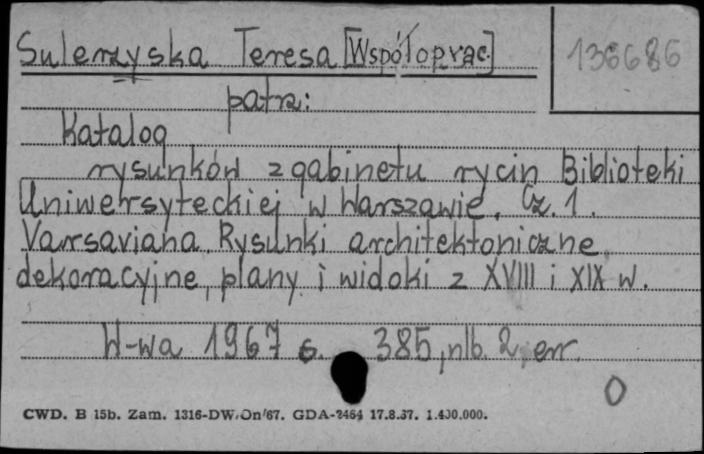 Sulerzyska Teresa [Współoprac.]
136686
patrz:
Katalog
rysunków z gabinetu rycin Biblioteki
Uniwersyteckiej w Warszawie. Cz. 1.
Varsaviana. Rysunki architektoniczne,
dekoracyjne, plany i widoki z XVIII i XIX w.
W-wa 1967 s. 385, nlb. 2, err.
O
CWD. B 15b. Zam. 1316-DW/On/67. GDA-2464 17.8.67. 1.400.000.